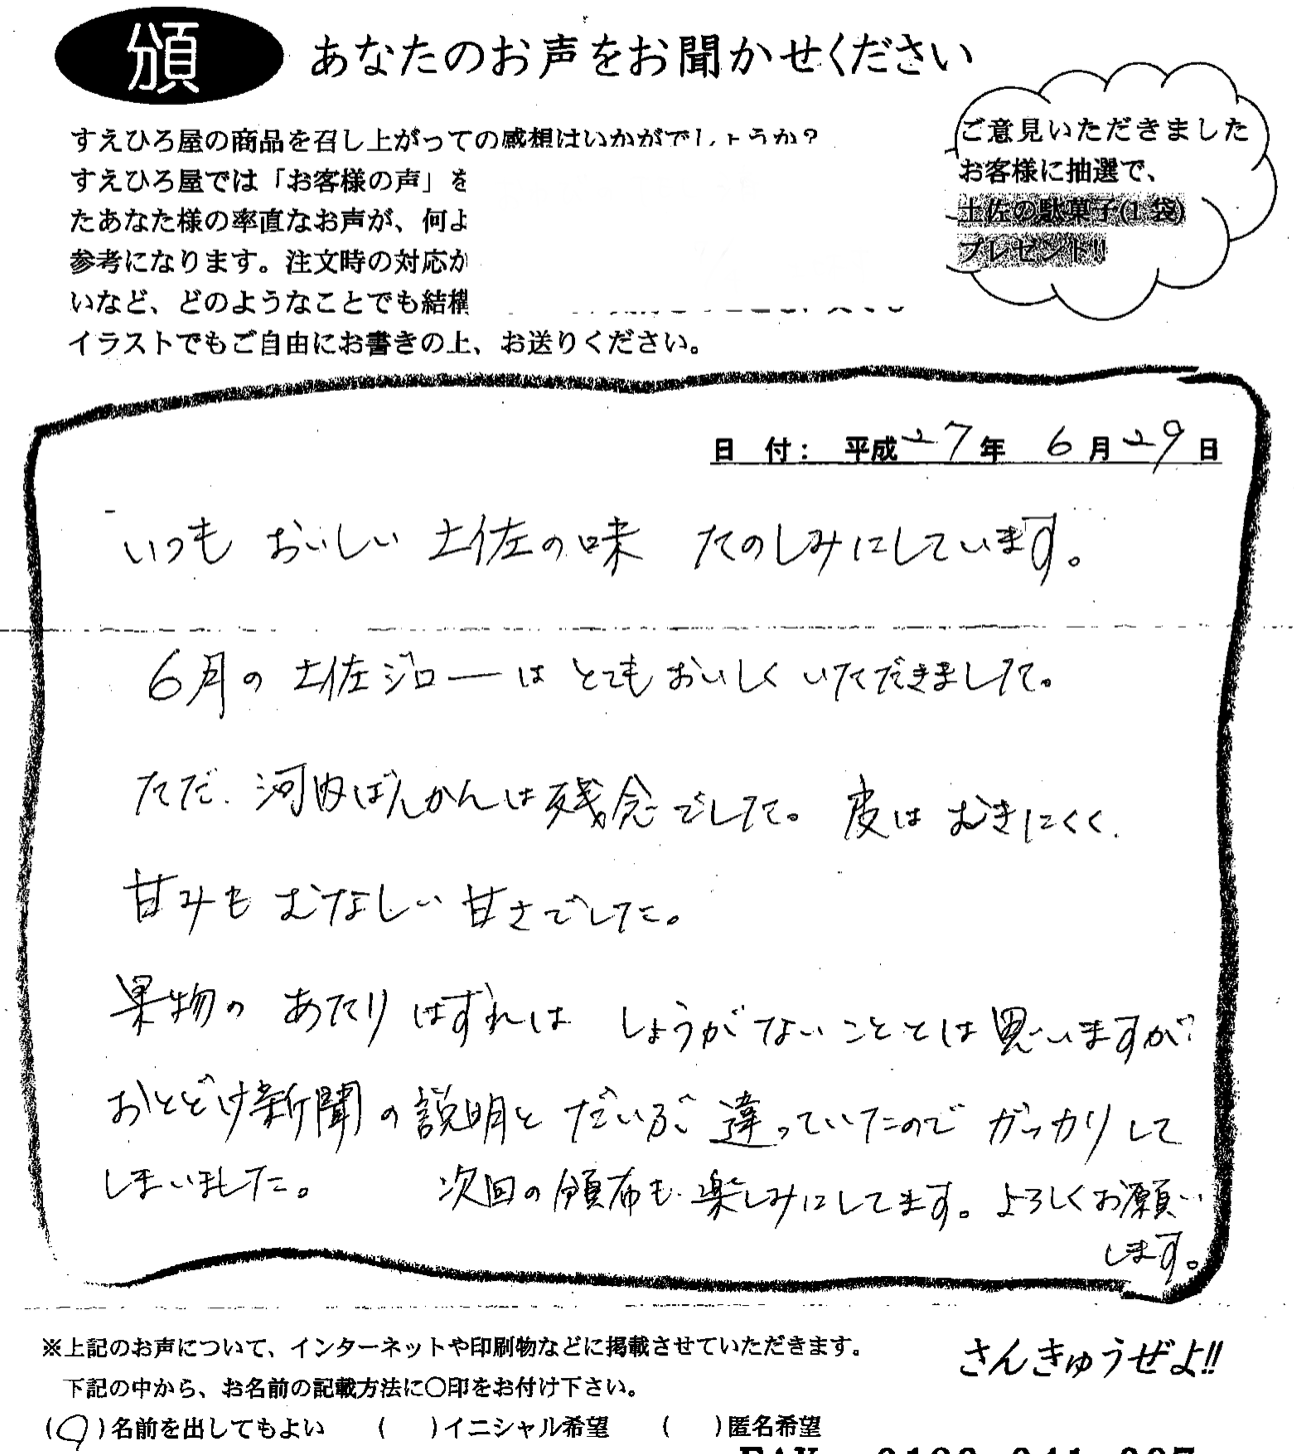 頒 あなたのお声をお聞かせください
すえひろ屋の商品を召し上がっての感想はいかがでしょうか？
すえひろ屋では「お客様の声」を
たあなた様の率直なお声が、何よ
参考になります。注文時の対応か
いなど、どのようなことでも結構
イラストでもご自由にお書きの上、お送りください。
ご意見いただきました
お客様に抽選で、
土佐の駄菓子(1袋)
プレゼント!!
日 付： 平成27年 6月29日
いつも おいしい 土佐の味 たのしみにしています。
6月の 土佐ジローは とてもおいしく いただきました。
ただ、河内ばんかんは残念でした。皮は むきにくく、
甘みも むなしい 甘さでした。
果物の あたりはずれは しょうがないこととは思いますが
おとどけ新聞の説明と だいぶ 違っていたので ガッカリして
しまいました。 次回の頒布も 楽しみにしてます。よろしくお願い
します。
※上記のお声について、インターネットや印刷物などに掲載させていただきます。
下記の中から、お名前の記載方法に○印をお付け下さい。
さんきゅうぜよ!!
(○)名前を出してもよい ( )イニシャル希望 ( )匿名希望